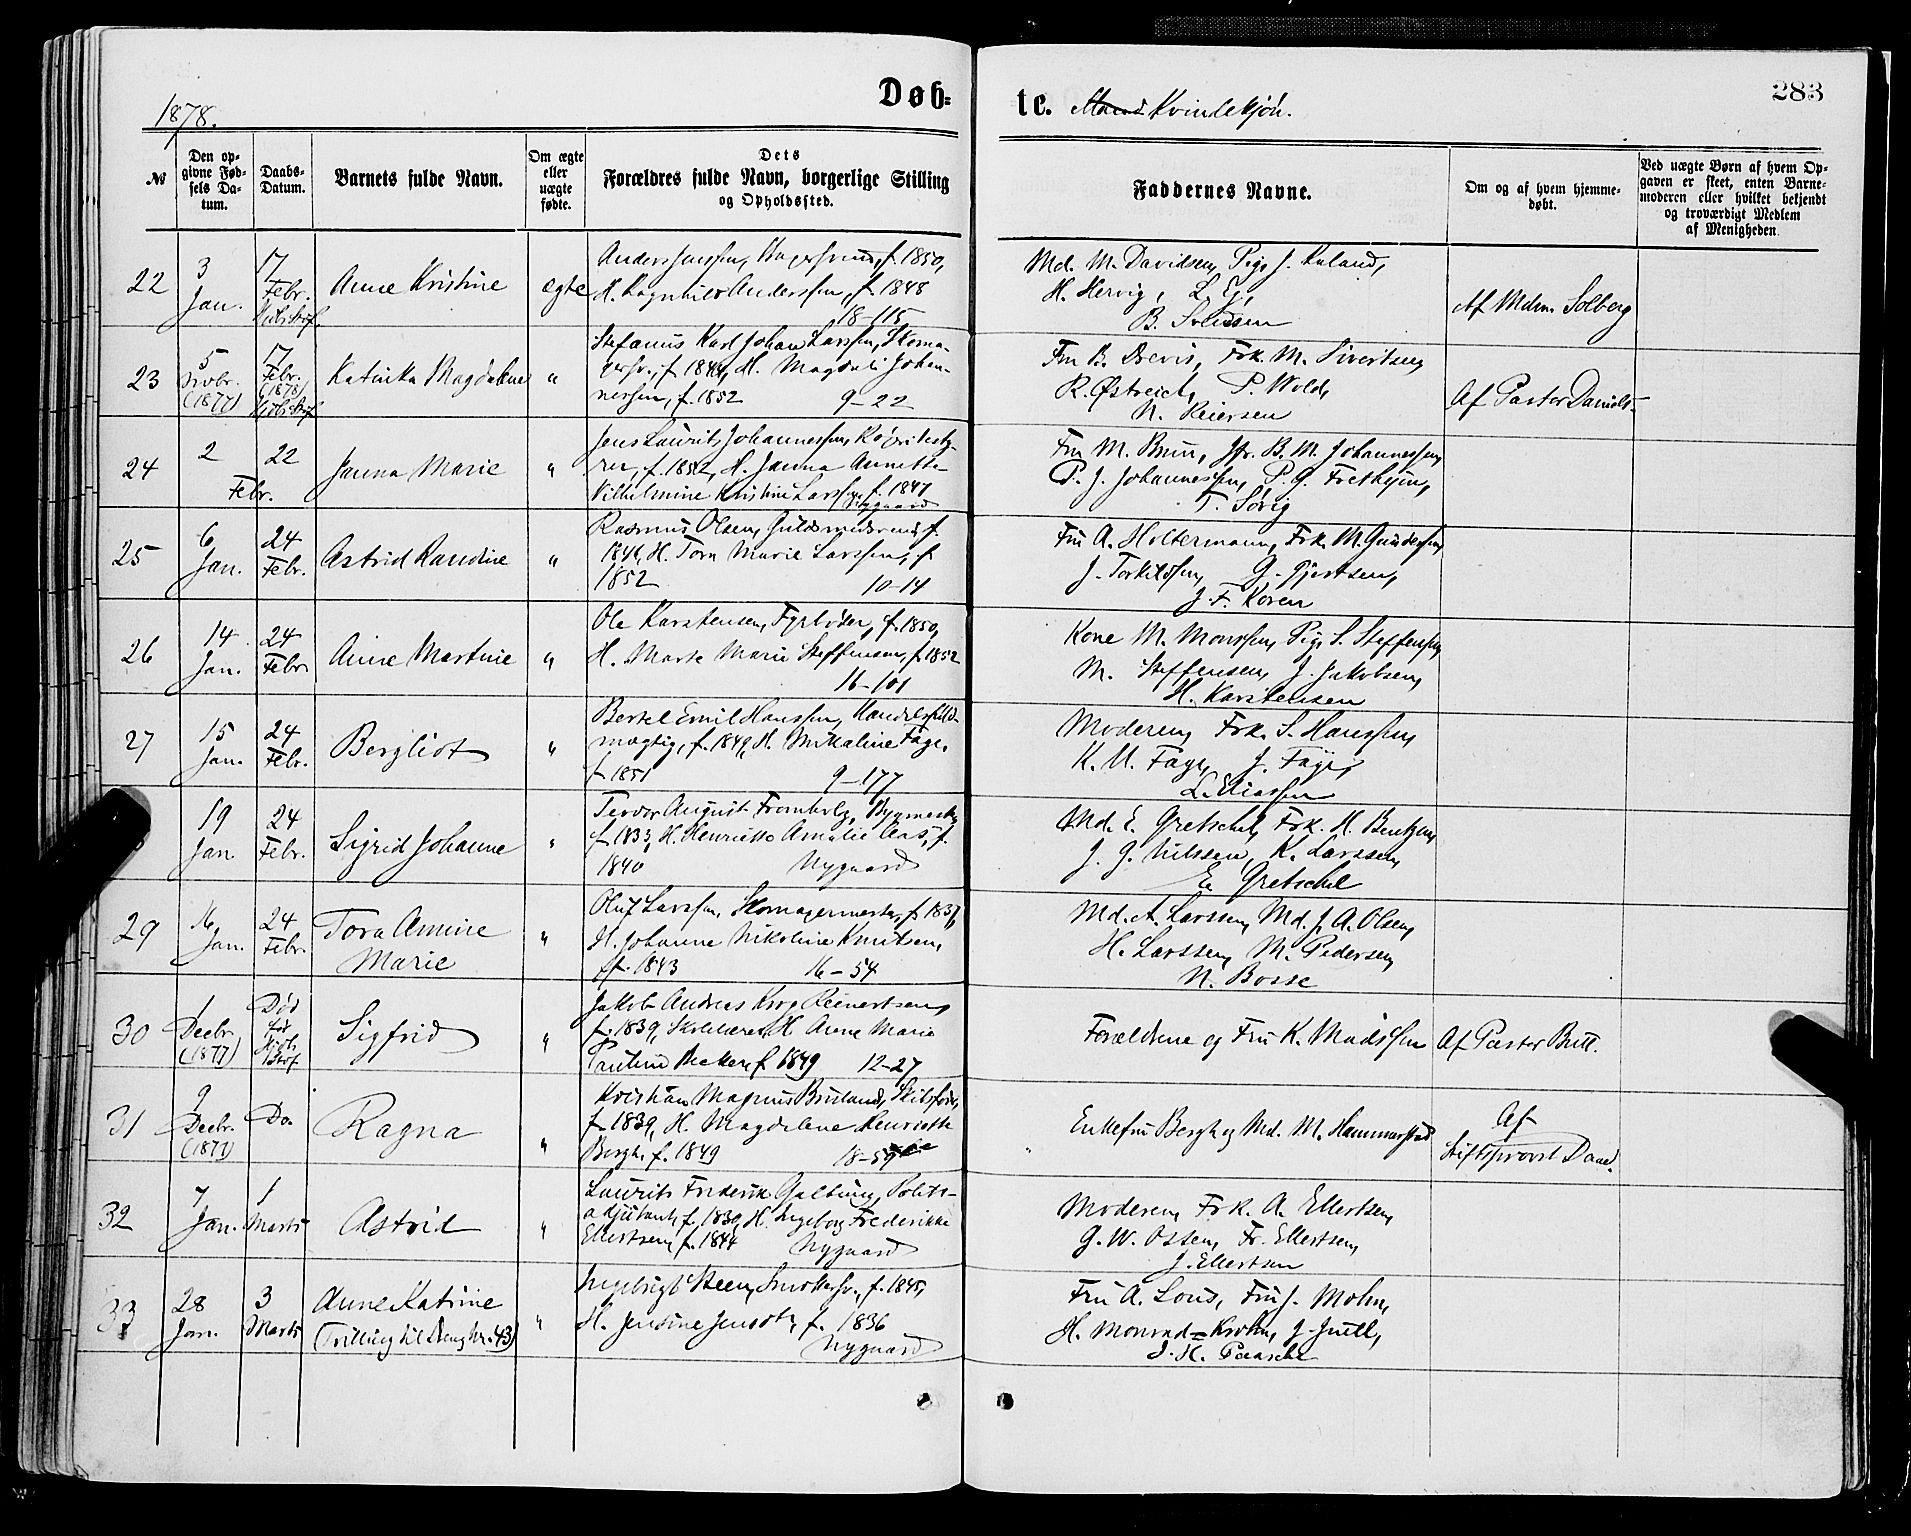 1878.
Døb=
te. Kvindekjøn.
283
№
Den op=
givne Fød=
sels Da=
tum.
Daabs=
Datum.
Barnets fulde Navn.
Om ægte
eller
uægte
fødte.
Dets
Forældres fulde Navn, borgerlige Stilling
og Opholdssted.
Faddernes Navne.
Om og af hvem hjemme=
døbt.
Ved uægte Børn af hvem Op=
gaven er skeet, enten Barne=
moderen eller hvilket bekjendt
og troværdigt Medlem
af Menigheden.
22
3
Jan.
17
Febr.
Anne Kristine
ægte
Anders Jenssen, f. 1850,
H. Ragnhild Anderssen, f. 1848
18-115
Md. M. Davidsen, Pige J.
H. Hervig,
B.
Af Mdm. Solberg
23
5
Novbr.
(1877)
17
Febr.
(1878)
Katinka Magdalene
"
Stefanus Karl Johan Larssen, Skoma-
gersv., H. Magdali Johan-
nessen, f. 1852 9-22
Fru B. Frk. M. Sivertsen
R. Østreich, P. Wold,
N. Reiersen
Af Pastor Daniels.
24
2
22
Febr.
Janna Marie
"
Jens Laurits Johannessen,
f. 1852, H. Janna Annette
Vilhelmine Kristine Larssen, f. 1847
Nygaard
Fru M. Brun, Jfr. B. M. Johannessen,
P. J. Johannessen, P. G.
T. Sørig
25
6
Jan.
24
Febr.
Astrid Randine
"
Rasmus Olsen, Guldsmedsvend, f.
H. Tora Marie Larssen, f.
1852 10-14
Fru A. Holtermann, Frk. M. Gundersen,
J. Torkildsen, G. Gjertsen,
J. F. Koren
26
14
Jan.
24
Febr.
Anne Martine
"
Ole Karstensen, Fyrbøder, f. 1850,
H. Marte Marie Steffensen, f. 1852
16-101
Kone M. Monssen, Pige S. Steffensen
M. Steffensen, J. Jakobsen,
H. Karstensen
27
15
Jan.
24
Febr.
Bergliot
"
Bertel Emil Hanssen, Handelsfuld-
mægtig, f. 1849, H. Mikaline Faye,
f. 1851 9-177
Moderen, Frk. S. Hanssen,
K. M. Faye, J. Faye,
L. Eliassen
19
Jan.
24
Febr.
Sigrid Johanne
"
Teodor August Fromholz, Bygmester,
f. 1833, H. Henriette Amalie f.
1840 Nygaard
Md. E. Gretschel, Frk. H. Bentzen,
J. J. Nilssen, K. Larssen,
E. Gretschel
29
16
Jan.
24
Febr.
Tora Amine
Marie
"
Oluf Larssen, Skomagermester, f. 1837,
H. Johanne Nikoline Knutsen,
f. 1843 16-54
Md. A. Larssen, Md. J. A. Olsen,
H. Larssen, M. Pedersen,
N. Bosse
30
1
Decbr.
(1877)
Død
før
Sigfrid
"
Jakob Andreas Krog Reinertsen,
f. 1839, Skolelærer, H. Anne Marie
Pauline Becker, f. 1849 12-27
Forældrene og Fru K. Madssen
Af Pastor Bull.
31
9
Decbr.
(1877)
Do.
Ragna
"
Kristian Magnus Bruland, Skibsfører,
f. 1839, H. Magdalene Henriette
Bergh, f. 1849 18-59
Enkefru Bergh og Md. M. Hammerstad
Af
Stiftsprovst Daae.
32
7
Jan.
1
Marts
Astrid
"
Laurits Frederik Galtung, Politi-
adjutant, f. 1830, H. Ingeborg Frederikke
Ellertsen, f. 1844 Nygaard
Moderen, Frk. A. Ellertsen,
G. W. Ossen, Fr. Ellertsen,
J. Ellertsen
33
28
Jan.
3
Marts
Anne Katrine
(Tvilling til Dreng Nr. 43)
"
Ingebrigt Steen, f. 1845,
H. Jensine f. 1836
Nygaard
Fru A. Lous, Fru J. Mohn,
H. Monrad=Krohn, J. Juell,
J. H. Paasche